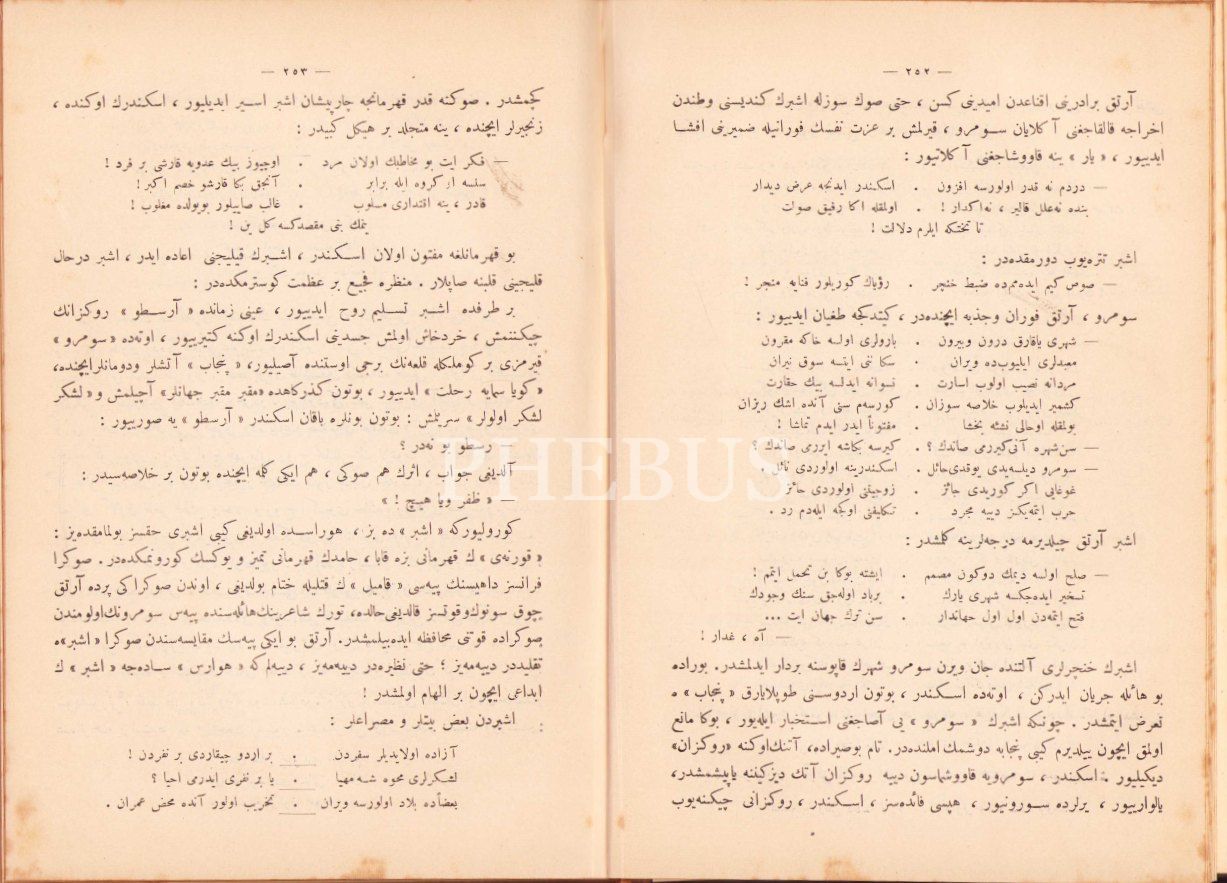 — ٢٥٢ —
آرتق برادرینی اقناعدن امیدینی كسن ، حتی صوك سوزله اشبرك كندیسنی وطندن
اخراجه قالقاجغنی آ كلایان سـومرو ، قیرلمش بر عزت نفسك فورانیله ضمیرینی افشا
ایدییور ، « یار » ینه قاووشاجغنی آ كلاتیور :
— دردم نه قدر اولورسه افزون . اسكندر ایدنجه عرض دیدار
بنده نه‌علل قالیر ، نه‌اكدار ! . اولمقله اكا رفیق صولت
تا تختكه ایلرم دلالت !
اشبر تتره‌یوب دورمقده‌در :
— صوص كیم ایده‌میم‌ده ضبط خنجر . رؤیاك كوریلور فنایه منجر !
سومرو ، آرتق فوران وجذبه ایچنده‌در ، كیتدكجه طغیان ایدییور :
— شهری یاقارق درون وبیرون . بارولری اولسه خاكه مقرون
معبدلری ایلیوب‌ده ویران . سكا نی ایتسه سوق نیران
مردانه نصیب اولوب اسارت . نسوانه ایدلسه بیك حقارت
كشمیر ایدیلوب خلاصه سوزان . كورسه‌م سنی آنده اشك ریزان
بولمقله اوحالی نشئه بخشا . مفتوناً ایدر ایدم تماشا !
— سن‌شهره آنی‌كیررمی صاندك ؟ . كیرسه بكاشه ایررمی صاندك ؟
— سومرو دیلسه‌یدی یوقدی‌حائل . اسكندرینه اولوردی نائل
غوغایی اكر كوریدی جائز . زوجیتنی اولوردی حائز
حرب ایتمه‌یكز دییه مجرد . تكلیفنی اوكجه ایله‌دم رد .
اشبر آرتق چیلدیرمه درجه‌لرینه كلمشدر :
— صلح اولسه دیمك دوكون مصمم . ایشته بوكا بن تحمل ایتمم !
تسخیر ایده‌جكسه شهری یارك . برباد اوله‌جق سنك وجودك
فتح ایتمه‌دن اول اول جهاندار . سن ترك جهان ایت ...
— آه ، غدار !
اشبرك خنجرلری آلتنده جان ویرن سومرو شهرك قاپوسنه بردار ایدلمشدر. بوراده
بو هائله جریان ایدركن ، اوته‌ده اسـكندر ، بوتون اردوسنی طوپلایارق « پنجاب » ه
تعرض ایتمشدر . چونكه اشبرك « سومرو » یی آصاجغنی استخبار ایله‌یور ، بوكا مانع
اولمق ایچون ییلدیرم كیبی پنجابه دوشمك املنده‌در. تام بوصیراده، آتنك‌اوكنه «روكزان»
دیكیلیور ؛ اسكندر ، سومرویه قاووشماسون دییه روكزان آتك دیزكیننه یاپیشمشدر،
یالوارییور ، یرلرده سـورونیور ، هپسی فائده‌سز ، اسـكندر ، روكزانی چیكنه‌یوب
— ٢٥٣ —
كچمشدر . صوكنه قدر قهرمانجه چارپیشان اشبر اسـیر ایدیلیور ، اسكندرك اوكنده ،
زنجیرلر ایچنده ، ینه متجلد بر هیكل كبیدر :
— فكر ایت بو مخاطبك اولان مرد . اوچیوز بیك عدویه قارشی بر فرد !
سنسه از كروه ایله برابر . آنجق بكا قارشو خصم اكبر !
قادر ، ینه اقتداری مسلوب . غالب صاییلور بویولده مغلوب !
یتمك بنی مقصدكسه كل بن !
بو قهرمانلغه مفتون اولان اسـكندر ، اشـبرك قیلیجنی اعاده ایدر ، اشبر درحال
قلیجینی قلبنه صاپلار . منظره فجیع بر عظمت كوسترمكده‌در :
بر طرفده اشـبر تسلیم روح ایدییور ، عینی زمانده « آرسطو » روكزانك
چیكننمش ، خردخاش اولمش جسدینی اسكندرك اوكنه كتیرییور ، اوته‌ده «سومرو»
قیرمزی بر كوملكله قلعه‌نك برجی اوستنده آصیلیور، « پنجاب » آتشلر ودومانلرایچنده،
« كویا سمایه رحلت » ایدییور ، بوتون كذركاهده «مقبر مقبر جهانلر» آچیلمش و «لشكر
لشكر اولولر » سریلمش : بوتون بونلره باقان اسكندر « آرسطو » یه صورییور :
— رسطو بو نه‌در ؟
آلدیغی جواب ، اثرك هم صوكی ، هم ایكی كلمه ایچنده بوتون بر خلاصه‌سیدر :
« ظفر ویا هیـچ ! »
كورولیوركه « اشبر » ده بز ، هوراسده اولدیغی كیبی اشبری حقسز بولمامقده‌یز :
« قورنه‌ی » ك قهرمانی بزه قابا ، حامدك قهرمانی تمیز و یوكسك كورونمكده‌در. صوكرا
فرانسز داهیسنك پیه‌سی « قامیل » ك قتلیله ختام بولدیغی ، اوندن صوكراكی پرده آرتق
چوق سونوك‌وقوتسز قالدیغی‌حالده، تورك شاعرینك‌هائله‌سنده پیه‌س سومرونك‌اولومندن
صوكراده قوتنی محافظه ایده‌بیلمشدر. آرتق بو ایكی پیه‌سك مقایسه‌سندن صوكرا «اشبر»ه
تقلیددر دییه‌مه‌یز ؛ حتی نظیره‌در دییه‌مه‌یز ، دییه‌لم‌كه « هوارس » سـاده‌جه « اشبر » ك
ابداعی ایچون بر الهام اولمشدر !
اشبردن بعض بیتلر و مصراعلر :
آزاده اولایدیلر سفردن . بر اردو چیقاردی بر نفردن !
لشكرلری محوه شـه‌مهیا . یا بر نفری ایدرمی احیا ؟
بعضاًده بلاد اولورسه ویران . تخریب اولور آنده محض عمران .
PHEBUS